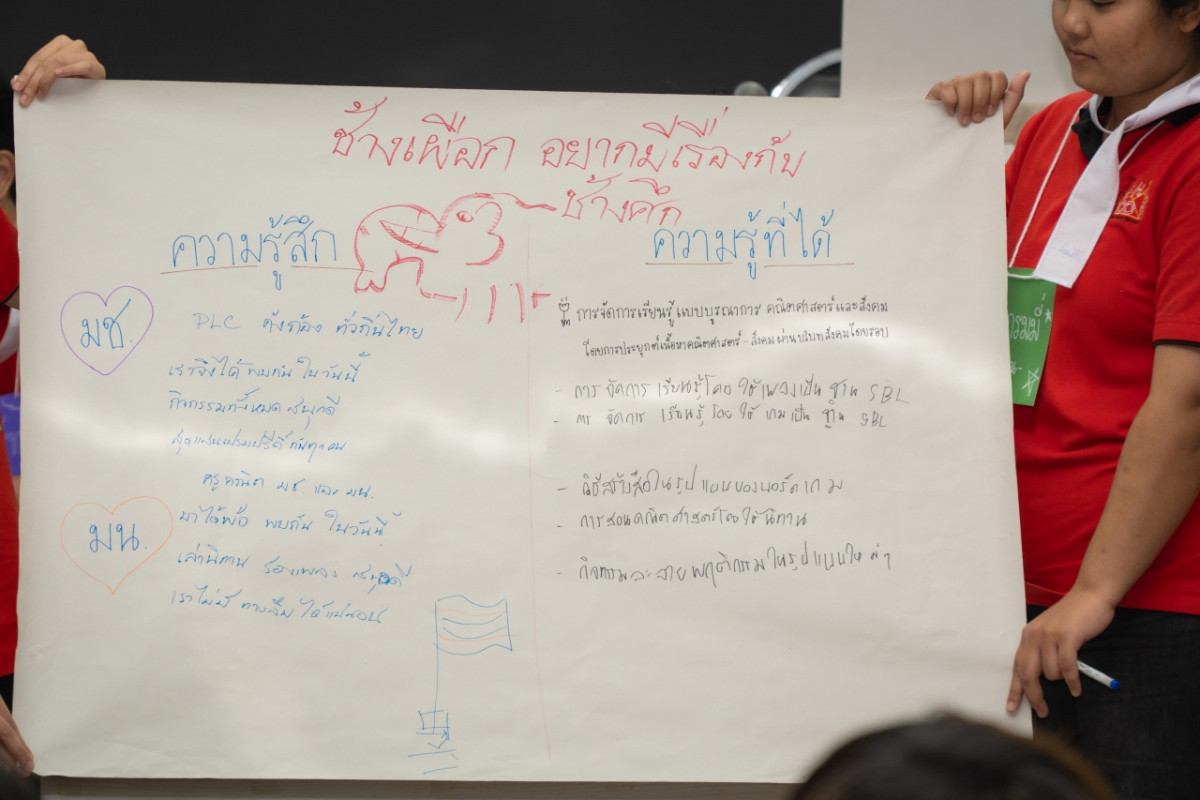 ช้างเผือก อยากมีเรื่องกับ
ช้างศึก
ความรู้สึก
มช.
PLC ดังก้อง ทั่วถิ่นไทย
เราจึงได้ พบกัน ในวันนี้
กิจกรรมทั้งหมด สนุกดี
สุดแสนเปรมปรีดิ์ กันทุกคน
ครูคณิต มช. และ มน.
มน.
มาได้พ้อ พบกัน ในวันนี้
เล่านิทาน ร้องเพลง สนุกดี
เราไม่มี ทางลืม ได้แน่นอน
ความรู้ที่ได้
การจัดการเรียนรู้แบบบูรณาการ คณิตศาสตร์และสังคม
โดยการประยุกต์เนื้อหาคณิตศาสตร์ - สังคม ผ่านบริบทสังคมโดยรอบ
- การ จัดการ เรียนรู้โดย ใช้เพลงเป็น ฐาน SBL
- การ จัดการ เรียนรู้ โดย ใช้ เกมเป็น ฐาน SBL
- วิธีสร้างสื่อในรูปแบบของบอร์ดเกม
- การสอนคณิตศาสตร์โดยใช้นิทาน
- กิจกรรมละลายพฤติกรรมในรูปแบบใหม่ๆ